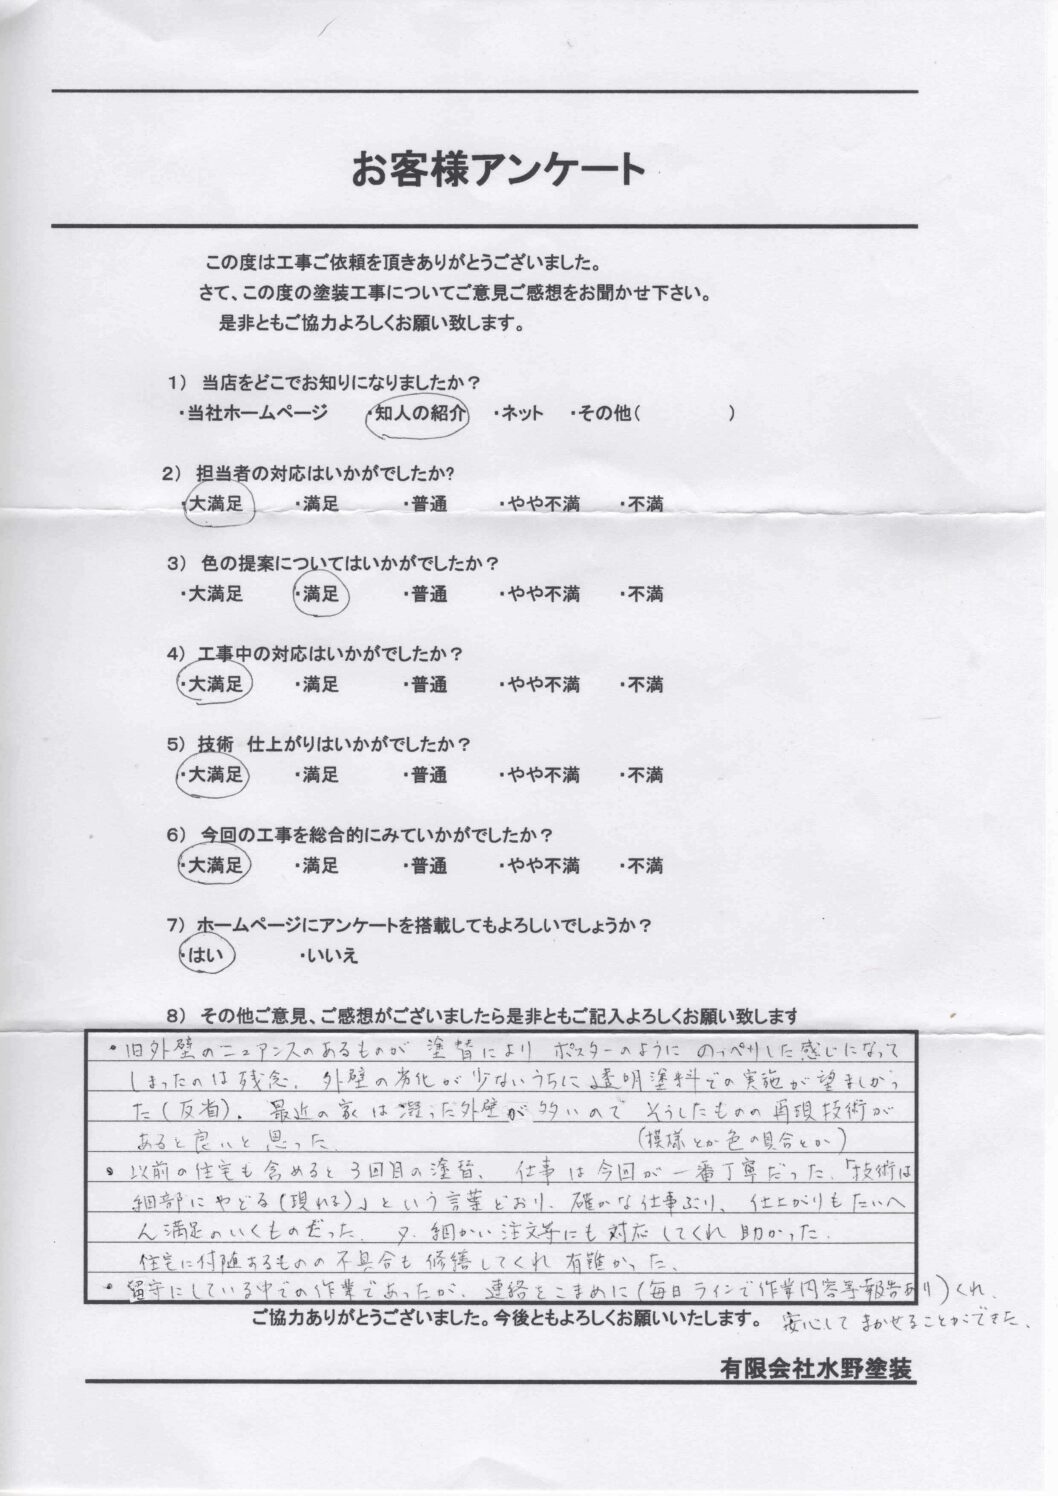 お客様アンケート
この度は工事ご依頼を頂きありがとうございました。
さて、この度の塗装工事についてご意見ご感想をお聞かせ下さい。
是非ともご協力よろしくお願い致します。
1） 当店をどこでお知りになりましたか？
・当社ホームページ ・知人の紹介 ・ネット ・その他（ ）
2） 担当者の対応はいかがでしたか?
・大満足 ・満足 ・普通 ・やや不満 ・不満
3） 色の提案についてはいかがでしたか？
・大満足 ・満足 ・普通 ・やや不満 ・不満
4） 工事中の対応はいかがでしたか？
・大満足 ・満足 ・普通 ・やや不満 ・不満
5） 技術 仕上がりはいかがでしたか？
・大満足 ・満足 ・普通 ・やや不満 ・不満
6） 今回の工事を総合的にみていかがでしたか？
・大満足 ・満足 ・普通 ・やや不満 ・不満
7） ホームページにアンケートを搭載してもよろしいでしょうか？
・はい ・いいえ
8） その他ご意見、ご感想がございましたら是非ともご記入よろしくお願い致します
・旧外壁のニュアンスのあるものが 塗替により ポスターのように のっぺりした感じになって
しまったのは残念。外壁の劣化が少ないうちに透明塗料での実施が望ましかっ
た（反省）。最近の家は凝った外壁が多いので そうしたものの再現技術が
あると良いと思った。 （模様とか色の具合とか）
・以前の住宅も含めると3回目の塗替、仕事は今回が一番丁寧だった。「技術は
細部にやどる（現れる）」という言葉どおり、確かな仕事ぶり、仕上がりもたいへ
ん満足のいくものだった。又、細かい注文等にも対応してくれ助かった。
住宅に付随あるものの不具合も修繕してくれ有難かった。
・留守にしている中での作業であったが、連絡をこまめに（毎日ラインで作業内容等報告あり）くれ、
安心してまかせることができた。
ご協力ありがとうございました。今後ともよろしくお願いいたします。
有限会社水野塗装